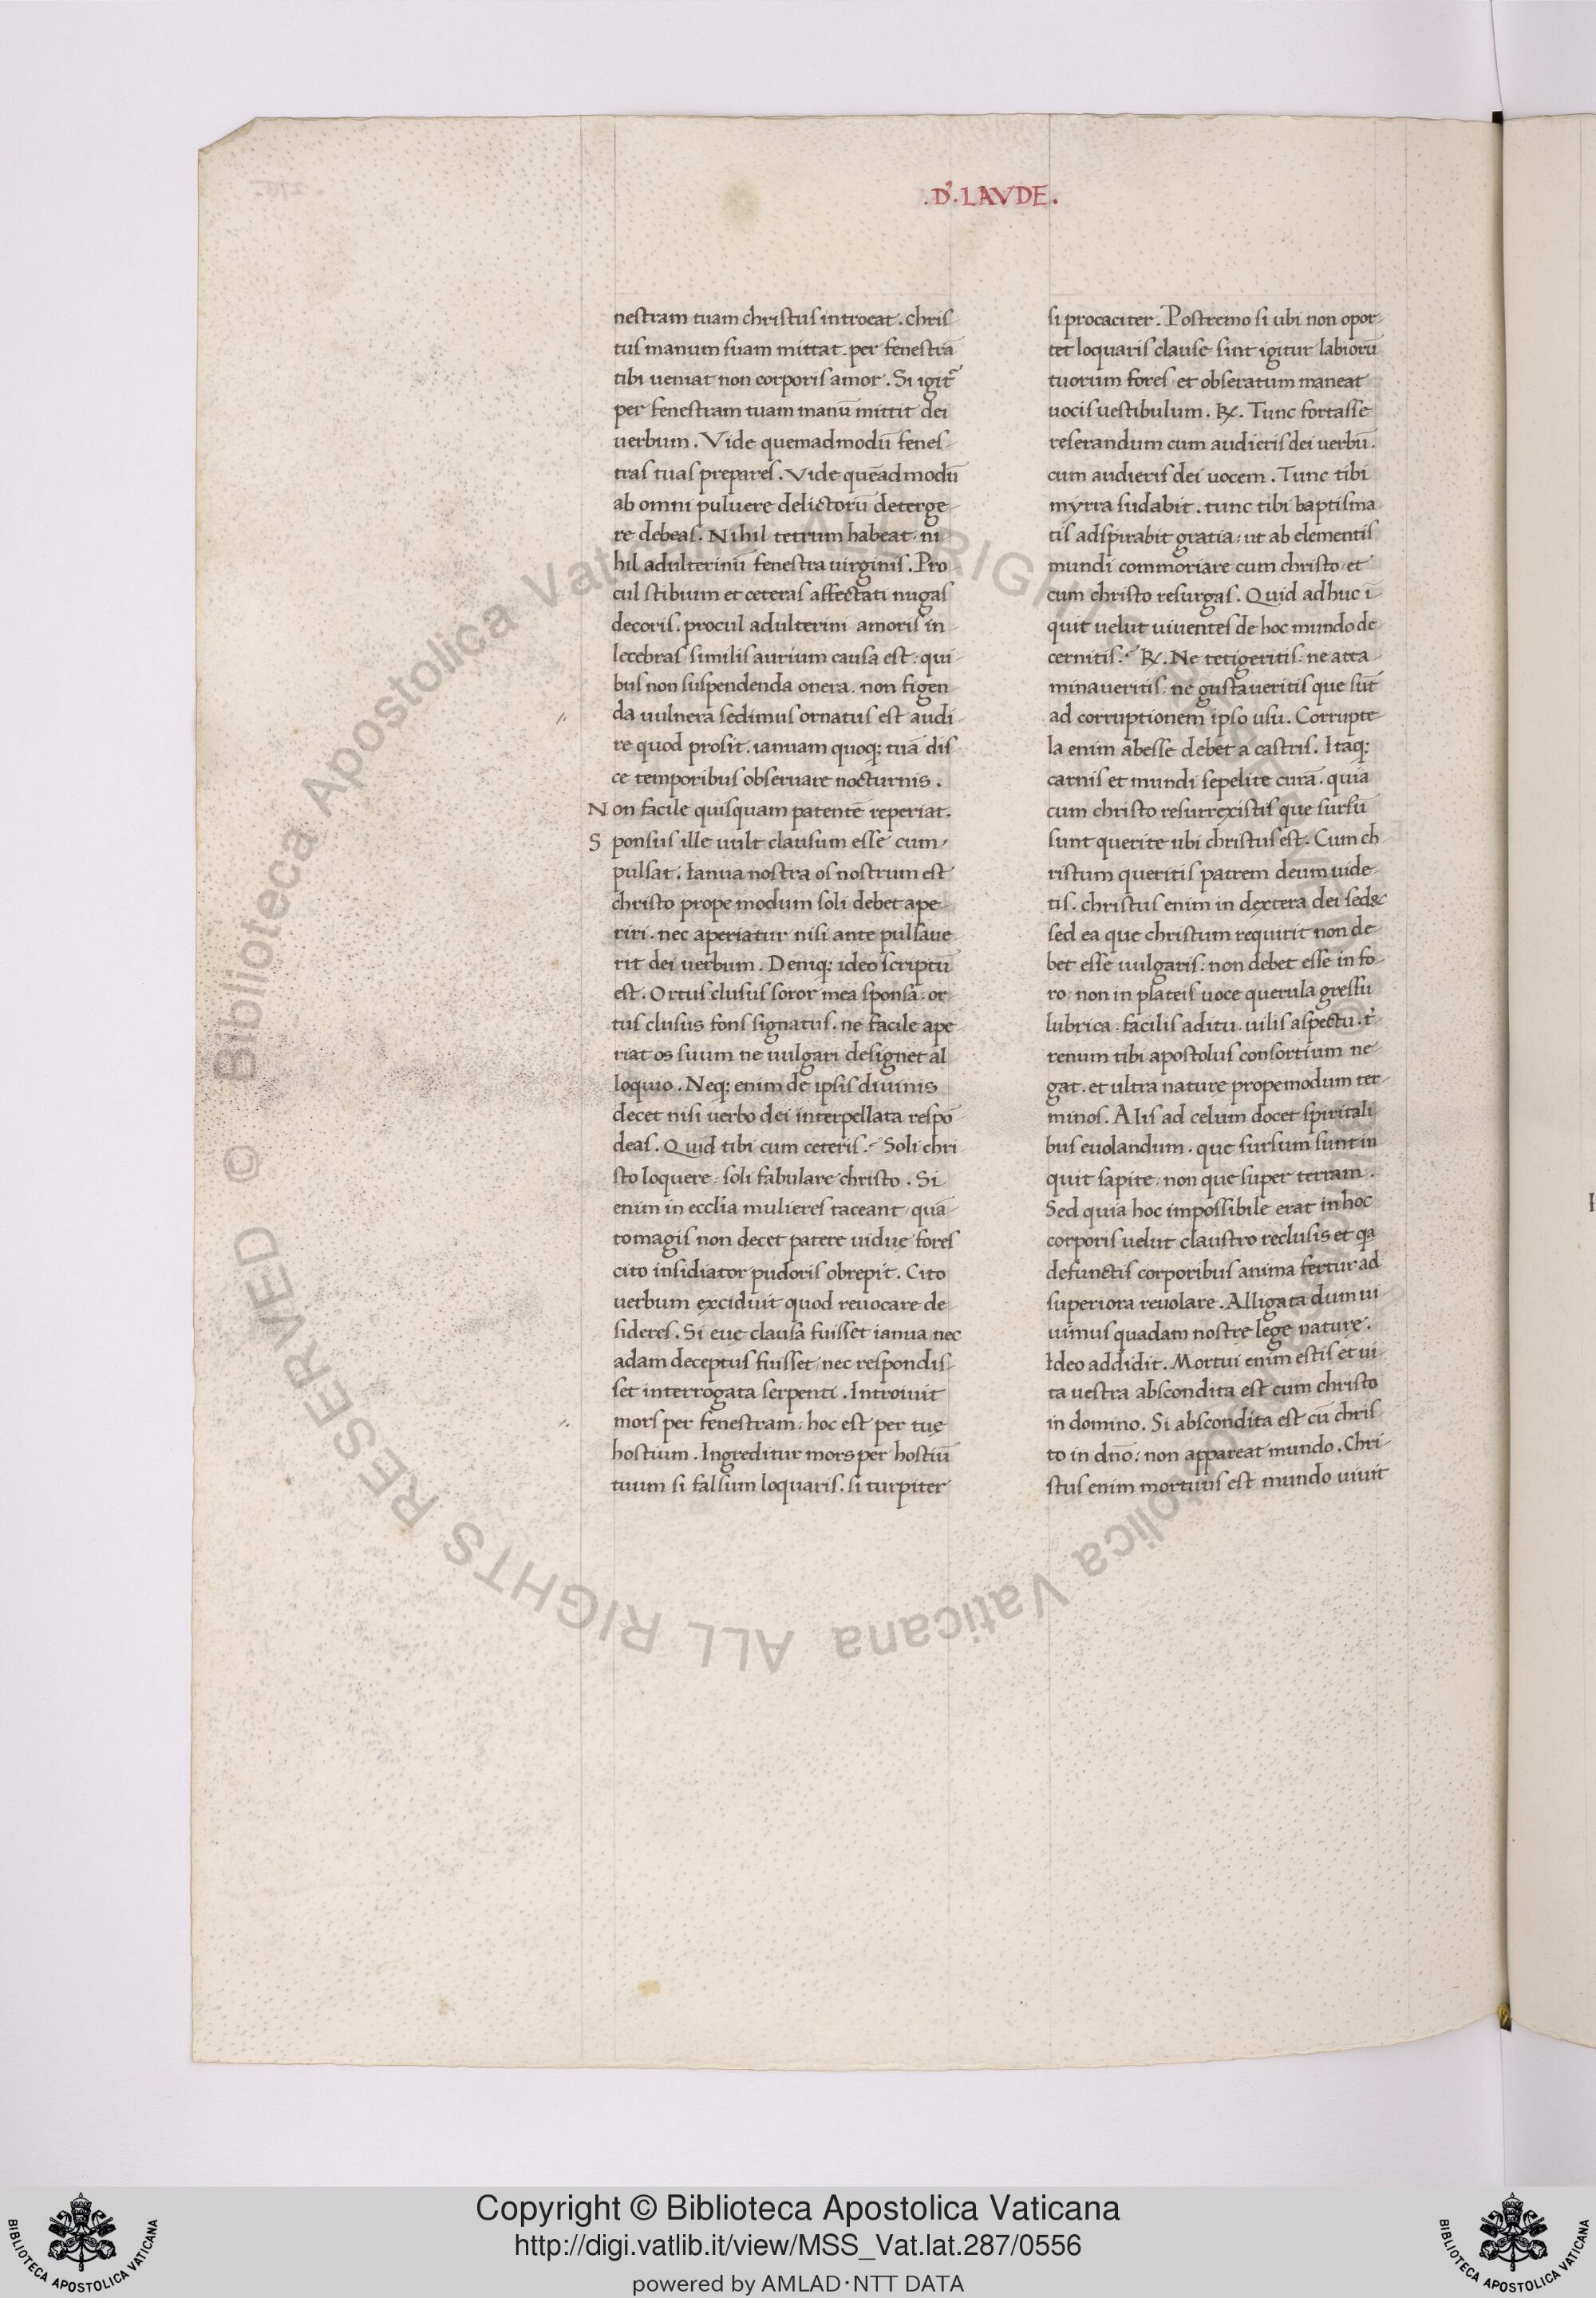 .D'. LAVDE.
nestram tuam christus introeat. chris-
tus manum suam mittat. per fenestrā
tibi ueniat non corporis amor. Si igit̃
per fenestram tuam manū mittit dei
uerbum. Vide quemadmodū fenes-
tras tuas prepares. Vide quēadmodū
ab omni puluere delictorū deterge-
re debeas. Nihil tetrum habeat. ni
hil adulterinū fenestra uirginis. Pro
cul stibium et ceteras affectati nugas
decoris. procul adulterini amoris in-
lecebras. similis aurium causa est. qui-
bus non suspendenda onera. non figen
da uulnera sed imus ornatus est audi-
re quod prosit. ianuam quoq; tuā dis-
ce temporibus obseruare nocturnis.
Non facile quisquam patentē reperiat.
Sponsus ille uult clausum esse cum
pulsat. Ianua nostra os nostrum est
christo prope modum soli debet ape-
riri. nec aperiatur nisi ante pulsaue
rit dei uerbum. Deniq; ideo scriptū
est. Ortus clusus soror mea sponsa. or-
tus clusus fons signatus. ne facile ape
riat os suum ne uulgari designet al
loquio. Neq; enim de ipsis diuinis
decet nisi uerbo dei interpellata respō
deas. Quid tibi cum ceteris. Soli chri
sto loquere. soli fabulare christo. Si
enim in eccl̄ia mulieres taceant. quā-
to magis non decet patere uidue fores
cito insidiator pudoris obrepit. Cito
uerbum excidiut quod reuocare de-
sideres. Si eue clausa fuisset ianua nec
adam deceptus fuisset. nec respondis-
set interrogata serpenti. Introiuit
mors per fenestram. hoc est per tue
hostium. Ingreditur mors per hostiū
tuum si falsum loquaris. si turpiter
si procaciter. Postremo si ubi non opor-
tet loquaris clause sint igitur labiorū
tuorum fores et obseratum maneat
uocis uestibulum. R. Tunc fortasse
reserandum cum audieris dei uerbū.
cum audieris dei uocem. Tunc tibi
myrra sudabit. tunc tibi baptisma
tis adspirabit gratia. ut ab elementis
mundi commoriare cum christo. et
cum christo resurgas. Quid adhuc ī-
quit uelut uiuentes de hoc mundo de
cernitis. R. Ne tetigeritis. ne atta-
minaueritis. ne gustaueritis que sūt
ad corruptionem ipso usu. Corrupte-
la enim abesse debet a castris. Itaq;
carnis et mundi sepelite curā. quia
cum christo resurrexistis que sursū
sunt querite ubi christus est. Cum ch
ristum queritis patrem deum uide-
tis. christus enim in dextera dei sed&
sed ea que christum requirit non de-
bet esse uulgaris. non debet esse in fo-
ro. non in plateis uoce querula gressu
lubrica. facilis aditu. uilis aspectu. t'
renum tibi apostolus consortium ne-
gat. et ultra nature propemodum ter-
minos. Alis ad celum docet spiritali
bus euolandum. que sursum sunt in
quit sapite. non que super terram.
Sed quia hoc impossibile erat in hoc
corporis uelut claustro reclusis et qa
defunctis corporibus anima fertur ad
superiora reuolare. Alligata dum ui
uimus quadam nostre lege nature.
Ideo addidit. Mortui enim estis et ui-
ta uestra abscondita est cum christo
in domino. Si abscondita est cū chris-
to in dn̄o. non appareat mundo. Chri-
stus enim mortuus est mundo uiuit
© Biblioteca Apostolica Vaticana ALL RIGHTS RESERVED
Copyright © Biblioteca Apostolica Vaticana
http://digi.vatlib.it/view/MSS_Vat.lat.287/0556
powered by AMLAD·NTT DATA
BIBLIOTECA APOSTOLICA VATICANA
BIBLIOTECA APOSTOLICA VATICANA